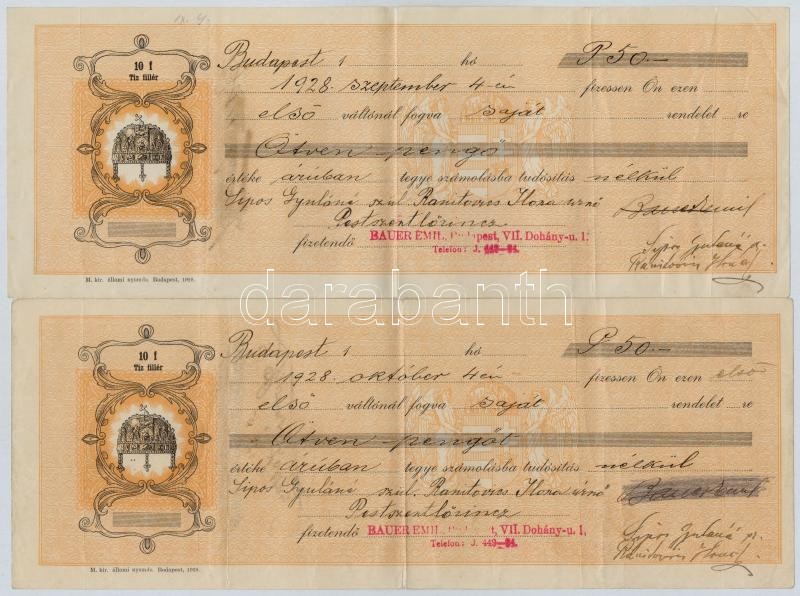 10 f
Tiz fillér
Budapest 1 hó P 50.—
1928. szeptember 4-én fizessen Ön ezen
első váltónál fogva saját rendelet re
Ötven pengő
értéke áruban tegye számolásba tudósítás nélkül
Sipos Gyuláné szül. Ranitovics Ilona úrnő
Pestszentlőrincz
fizetendő BAUER EMIL, Budapest, VII. Dohány-u. 1.
Telefon: J.
Sipos
M. kir. állami nyomda. Budapest, 1928.
darabanth
10 f
Tiz fillér
Budapest 1 hó P 50.—
1928. október 4-én fizessen Ön ezen első
első váltónál fogva saját rendelet re
Ötven pengőt
értéke áruban tegye számolásba tudósítás nélkül
Sipos Gyuláné szül. Ranitovics Ilona úrnő
Pestszentlőrincz
fizetendő BAUER EMIL, VII. Dohány-u. 1,
Telefon: J. 449
Sipos
M. kir. állami nyomda. Budapest, 1928.